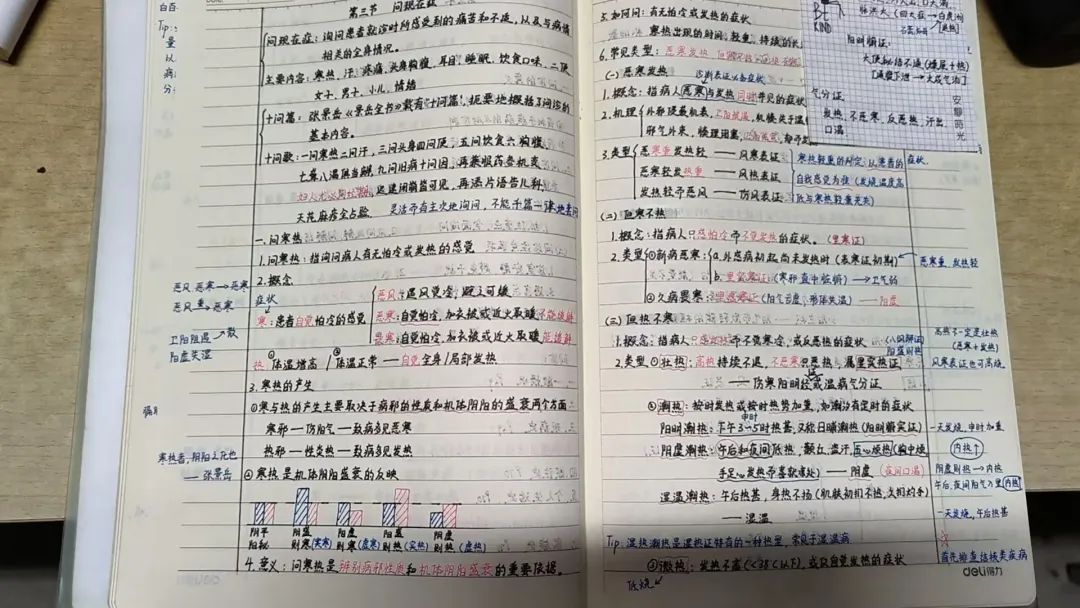 第三节 问现在症
问现在症：询问患者就诊时所感受到的痛苦和不适，以及与病情
相关的全身情况。
主要内容：寒热，汗，疼痛，头身胸腹，耳目，睡眠，饮食口味，二便
女子，男子，小儿，情绪
十问篇：张景岳《景岳全书》载有“十问篇”，扼要地概括了问诊的
基本内容。
十问歌：一问寒热二问汗，三问头身四问便，五问饮食六胸腹
七聋八渴俱当辨，九问旧病十问因，再兼服药参机变
妇人尤必问经期，迟速闭崩皆可见，再添片语告儿科
天花麻疹全占验
灵活而有主次地询问，不能千篇一律地去问
一.问寒热
1.问寒热：指询问病人有无怕冷或发热的感觉
2.概念
恶风 恶寒→恶寒
恶风 重→恶寒
症状
寒：患者自觉怕冷的感觉
恶风：遇风觉冷，避之可缓
恶寒：自觉怕冷，加衣被或近火取暖不能缓解
畏寒：自觉怕冷，加衣被或近火取暖能缓解
卫阳阻遏→散
阳虚失温
热 ①体温增高 / ②体温正常——自觉全身/局部发热
3.寒热的产生
①寒与热的产生主要取决于病邪的性质和机体阴阳的盛衰两个方面
寒邪——伤阳气——致病多见恶寒
热邪——性炎热——致病多见发热
寒热者，阴阳之化也
——张景岳
②寒热是机体阴阳盛衰的反映
阴平 阴盛 阳虚 阳盛 阴虚
阳秘 则寒(实寒) 则寒(虚寒) 则热(实热) 则热(虚热)
4.意义：问寒热是辨别病邪性质和机体阴阳盛衰的重要依据。
deli
5.如何问：有无怕冷或发热的症状
寒热出现的时间，轻重，持续的长
6.常见类型：恶寒发热
(一)恶寒发热 诊断表证必备症状
1.概念：指病人恶寒与发热同时并见的症状
2.机理
3.类型 恶寒重发热轻——风寒表证
恶寒轻发热重——风热表证
发热轻而恶风——伤风表证
寒热轻重的判定：以患者的
自我感觉为准（发烧温度高
低与寒热轻重无关）
症状.
阳明腑证
大便秘结不通（燥屎+热）
气分证
发热，不恶寒，反恶热，汗出，
口渴
安静时光
(二)但寒不热
1.概念：指病人只感怕冷而不觉发热的症状。（里寒证）
2.类型 ①新病恶寒：a.外感病初起尚未发热时（表寒证初期）
恶寒重，发热轻
b.里实寒证（寒邪直中脏腑）→卫气弱
②久病畏寒：里虚寒证（阳气亏虚，形体失温）——阳虚
(三)但热不寒
1.概念：指病人只感发热而不觉寒冷，或反恶热的症状。
（八纲辨证）
阳盛则热
高热不一定是壮热
(恶寒+发热)
风寒表证也可高烧
2.类型 ①壮热：高热持续不退，不恶寒只恶热，属里实热证
——伤寒阳明经或温病气分证
②潮热：按时发热或按时热势加重，如潮汐有定时的症状
申时
阳明潮热：下午3—5时热甚，又称日晡潮热（阳明腑实证）
一天发烧，申时加重
阴虚潮热：午后和夜间低热，颧红，盗汗，五心烦热（胸中烦
手足心发热而喜就凉处）——阴虚（夜间口渴）
内热↑
阴虚则热→内热
午后，夜间阳气入里 内热
湿温潮热：午后热甚，身热不扬（肌肤初扪不热，久扪灼手）
——湿温
一天发烧，午后热甚
Tip：湿热潮热是湿热证特有的一种热型，常见于湿温病
③微热：发热不高（<38℃以下），或仅自觉发热的症状
低烧
首先检查结核类疾病
deli得力